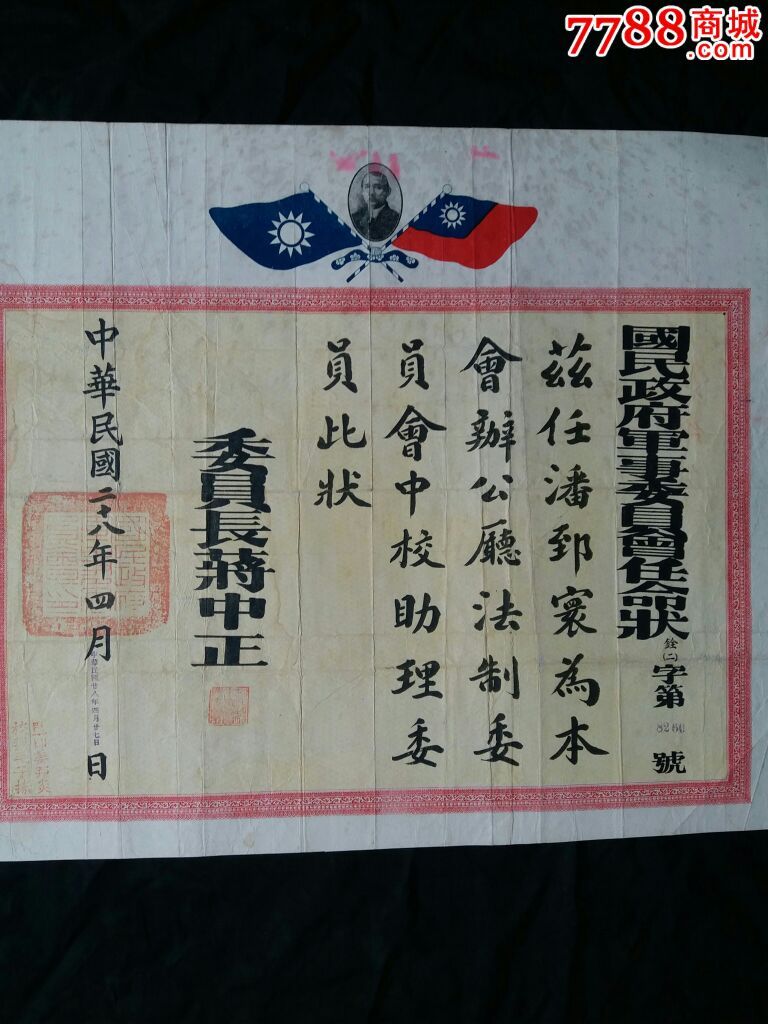 7788商城
.com
國民政府軍事委員會任命狀
銓(二)字第
號
茲任潘郅寰為本
會辦公廳法制委
員會中校助理委
員此狀
委員長蔣中正
中華民國二十八年四月
日
中華民國廿八年四月廿七日